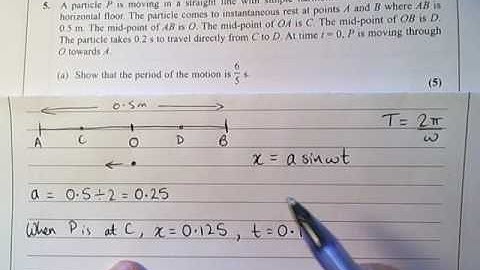 5. A particle P is moving in a straight line with simple
horizontal floor. The particle comes to instantaneous rest at points A and B where AB is
0.5 m. The mid-point of AB is O. The mid-point of OA is C. The mid-point of OB is D.
The particle takes 0.2 s to travel directly from C to D. At time t = 0, P is moving through
O towards A.
(a) Show that the period of the motion is 6/5 s.
(5)
0.5m
A C O D B
T = 2π/ω
x = a sin ωt
a = 0.5 ÷ 2 = 0.25
When P is at C, x = 0.125, t = 0.1